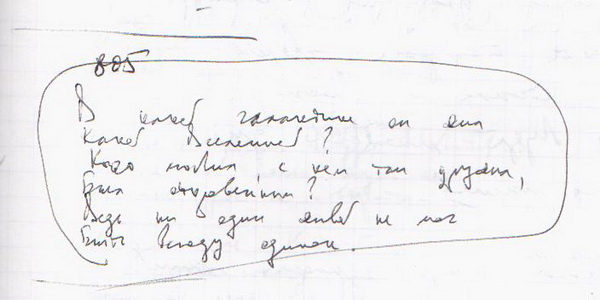 В какой галактике он жил
Какой Вселенной?
Кого любил, с кем там дружил,
Был откровенным?
Ведь ни один живой не мог
Быть всюду одинок.